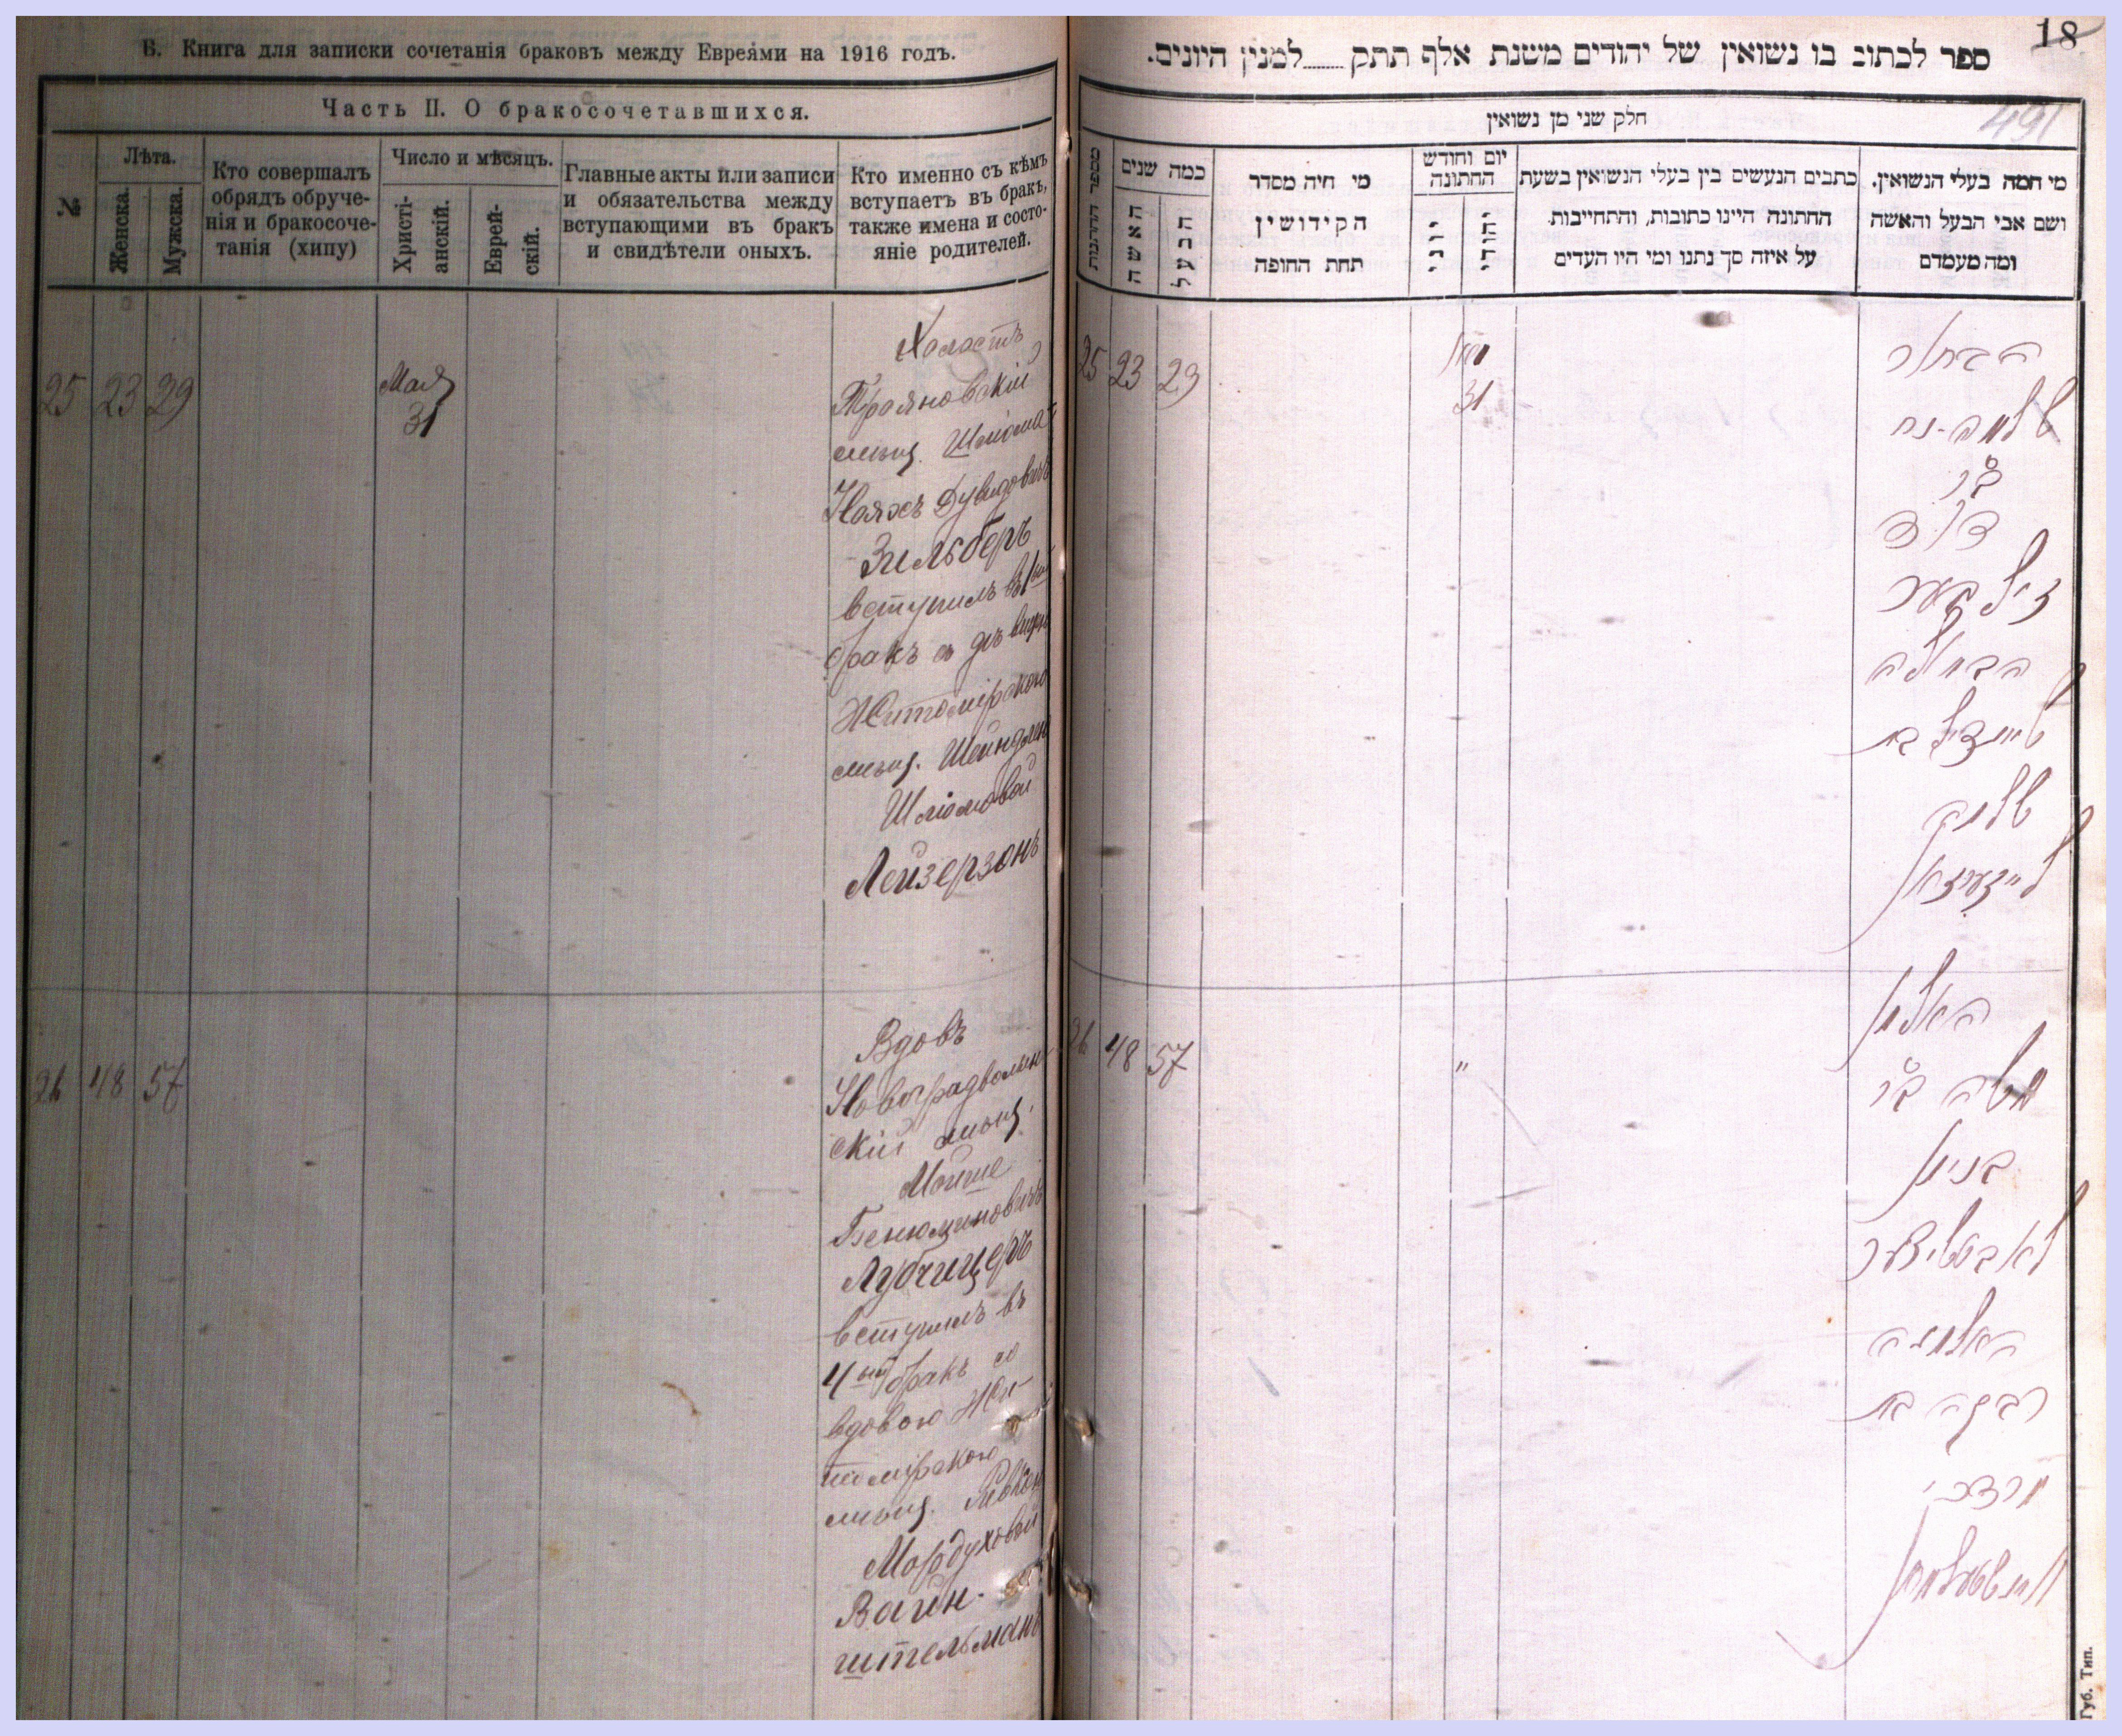 Б. Книга для записки сочетанія браковъ между Евреями на 1916 годъ.
Часть II. О бракосочетавшихся.
№
Лѣта.
Женска.
Мужска.
Кто совершалъ
обрядъ обруче-
нія и бракосоче-
танія (хипу)
Число и мѣсяцъ.
Христі-
анскій.
Еврей-
скій.
Главные акты или записи
и обязательства между
вступающими въ бракъ
и свидѣтели оныхъ.
Кто именно съ кѣмъ
вступаетъ въ бракъ,
также имена и состо-
яніе родителей.
25 23 29
Мая
31
Холостъ
Трояновскій
мѣщ. Шліома-
Нояхъ Дувидовичъ
Зильберъ
вступилъ въ 1ый
бракъ съ дѣвицею
Житомірскою
мѣщ. Шейндлею
Шліомовой
Лейзерзонъ
26 48 57
Вдовъ
Новоградволын
скій мѣщ.
Мойше
Бенюминовичъ
Лубчицеръ
вступилъ въ
4ый бракъ со
вдовою Жи-
томірскою
мѣщ. Ривкою
Мордуховой
Вайн-
штельманъ
18
491
ספר לכתוב בו נשואין של יהודים משנת אלף תתק........למנין היונים.
חלק שני מן נשואין
מספר החתונות
כמה שנים
האשה
הבעל
מי היה מסדר
הקידושין
תחת החופה
יום וחודש
החתונה
יוני
יהודי
כתבים הנעשים בין בעלי הנשואין בשעת
החתונה היינו כתובות, והתחייבות
על איזה סך נתנו ומי היו העדים
מי המה בעלי הנשואין.
ושם אבי הבעל והאשה
ומה מעמדם
25 23 29
מאי
31
הבחור
שלמה-נח
ב"ר
דוד
זילבער
הבתולה
שיינדיל בת
שלמה
לייזערזאן
26 48 57
"
האלמן
משה ב"ר
בנימן
לאבטשיצער
האלמנה
רבקה בת
מרדכי
וויינשטעלמאן
Губ. Тип.